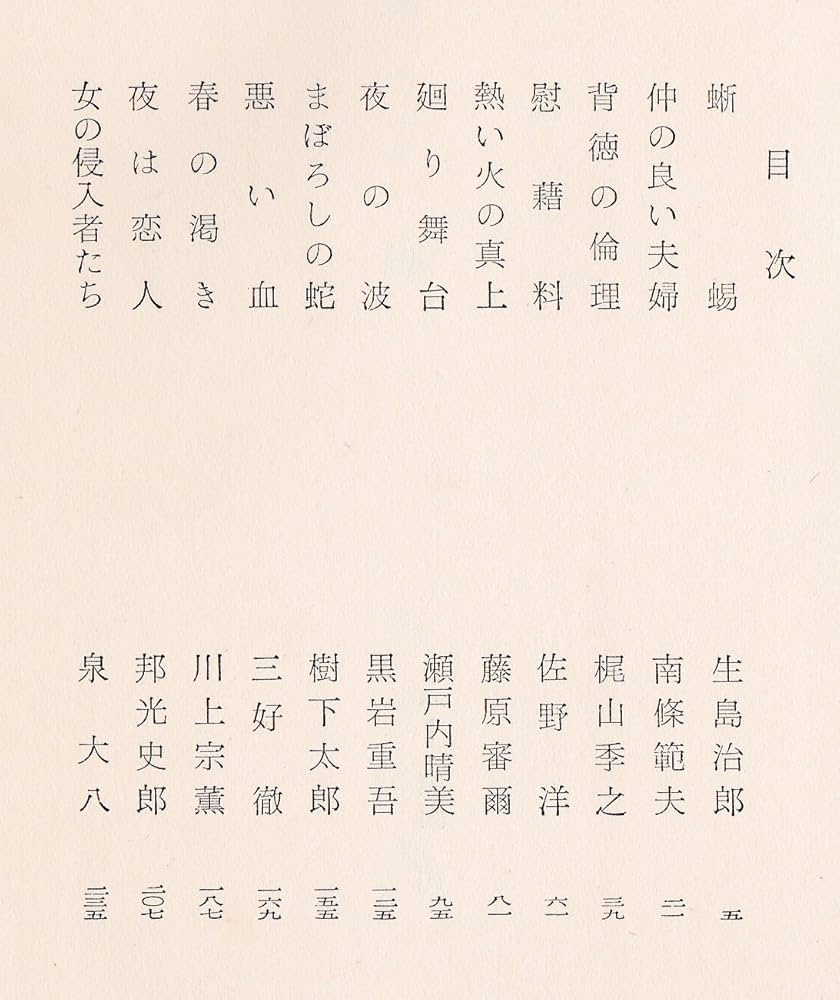 目次
蜥蜴 生島治郎 五
仲の良い夫婦 南條範夫 二一
背徳の倫理 梶山季之 三九
慰藉料 佐野洋 六一
熱い火の真上 藤原審爾 八一
廻り舞台 瀬戸内晴美 九五
夜の波 黒岩重吾 一二五
まぼろしの蛇 樹下太郎 一五五
悪い血 三好徹 一六九
春の渇き 川上宗薫 一八七
夜は恋人 邦光史郎 二〇七
女の侵入者たち 泉大八 二三五